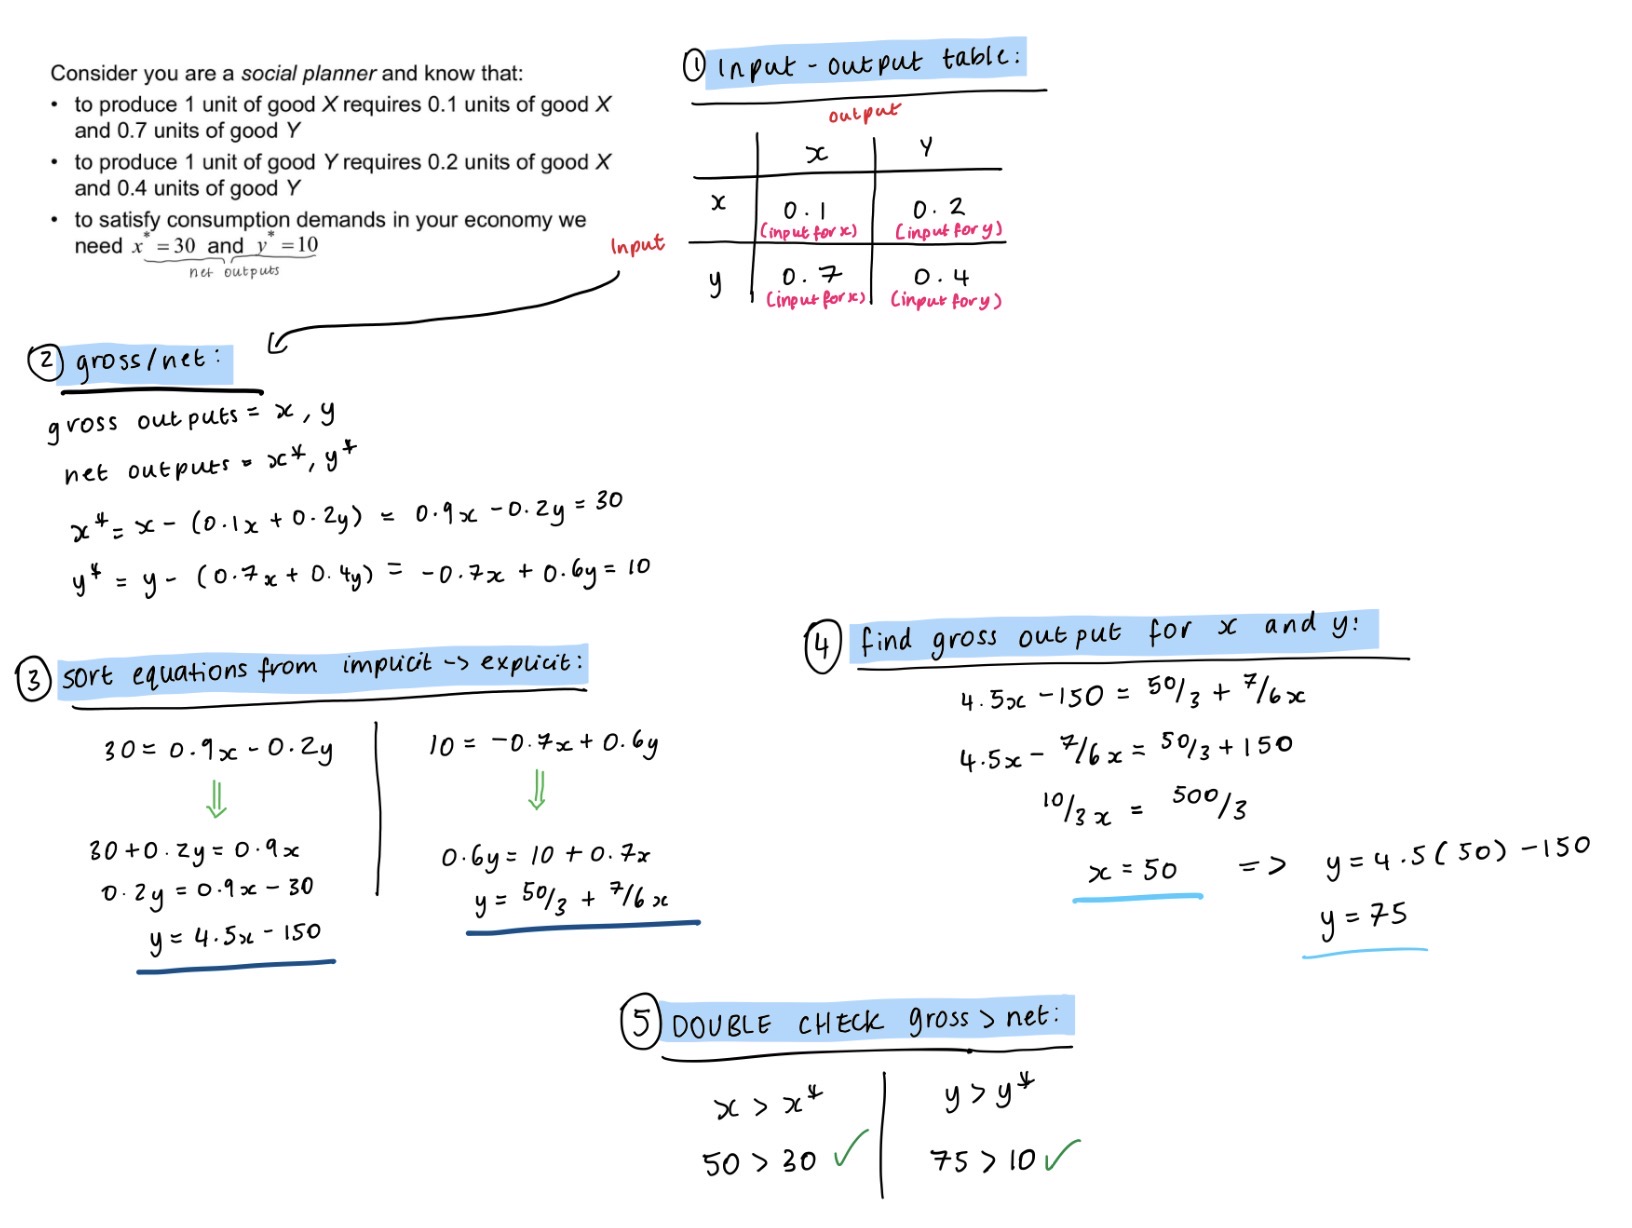 Consider you are a social planner and know that:
• to produce 1 unit of good X requires 0.1 units of good X
and 0.7 units of good Y
• to produce 1 unit of good Y requires 0.2 units of good X
and 0.4 units of good Y
• to satisfy consumption demands in your economy we
need x* = 30 and y* = 10
net outputs
① Input - output table:
output
x Y
x 0.1 0.2
(input for x) (input for y)
Input
y 0.7 0.4
(input for x) (input for y)
② gross/net:
gross outputs = x, y
net outputs = x*, y*
x* = x - (0.1x + 0.2y) = 0.9x - 0.2y = 30
y* = y - (0.7x + 0.4y) = -0.7x + 0.6y = 10
③ sort equations from implicit -> explicit:
30 = 0.9x - 0.2y
⇓
30 + 0.2y = 0.9x
0.2y = 0.9x - 30
y = 4.5x - 150
10 = -0.7x + 0.6y
⇓
0.6y = 10 + 0.7x
y = 50/3 + 7/6 x
④ find gross output for x and y:
4.5x - 150 = 50/3 + 7/6 x
4.5x - 7/6 x = 50/3 + 150
10/3 x = 500/3
x = 50 => y = 4.5(50) - 150
y = 75
⑤ DOUBLE CHECK gross > net:
x > x*
50 > 30 ✓
y > y*
75 > 10 ✓